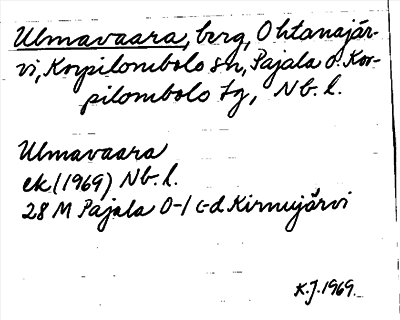 Ulmavaara, berg, Ohtanajär-
vi, Korpilombolo sn, Pajala o. Kor-
pilombolo tg, Nb. l.
Ulmavaara
ek. (1969) Nb. l.
28 M Pajala 0-1 c-d Kirnujärvi
K.J. 1969.